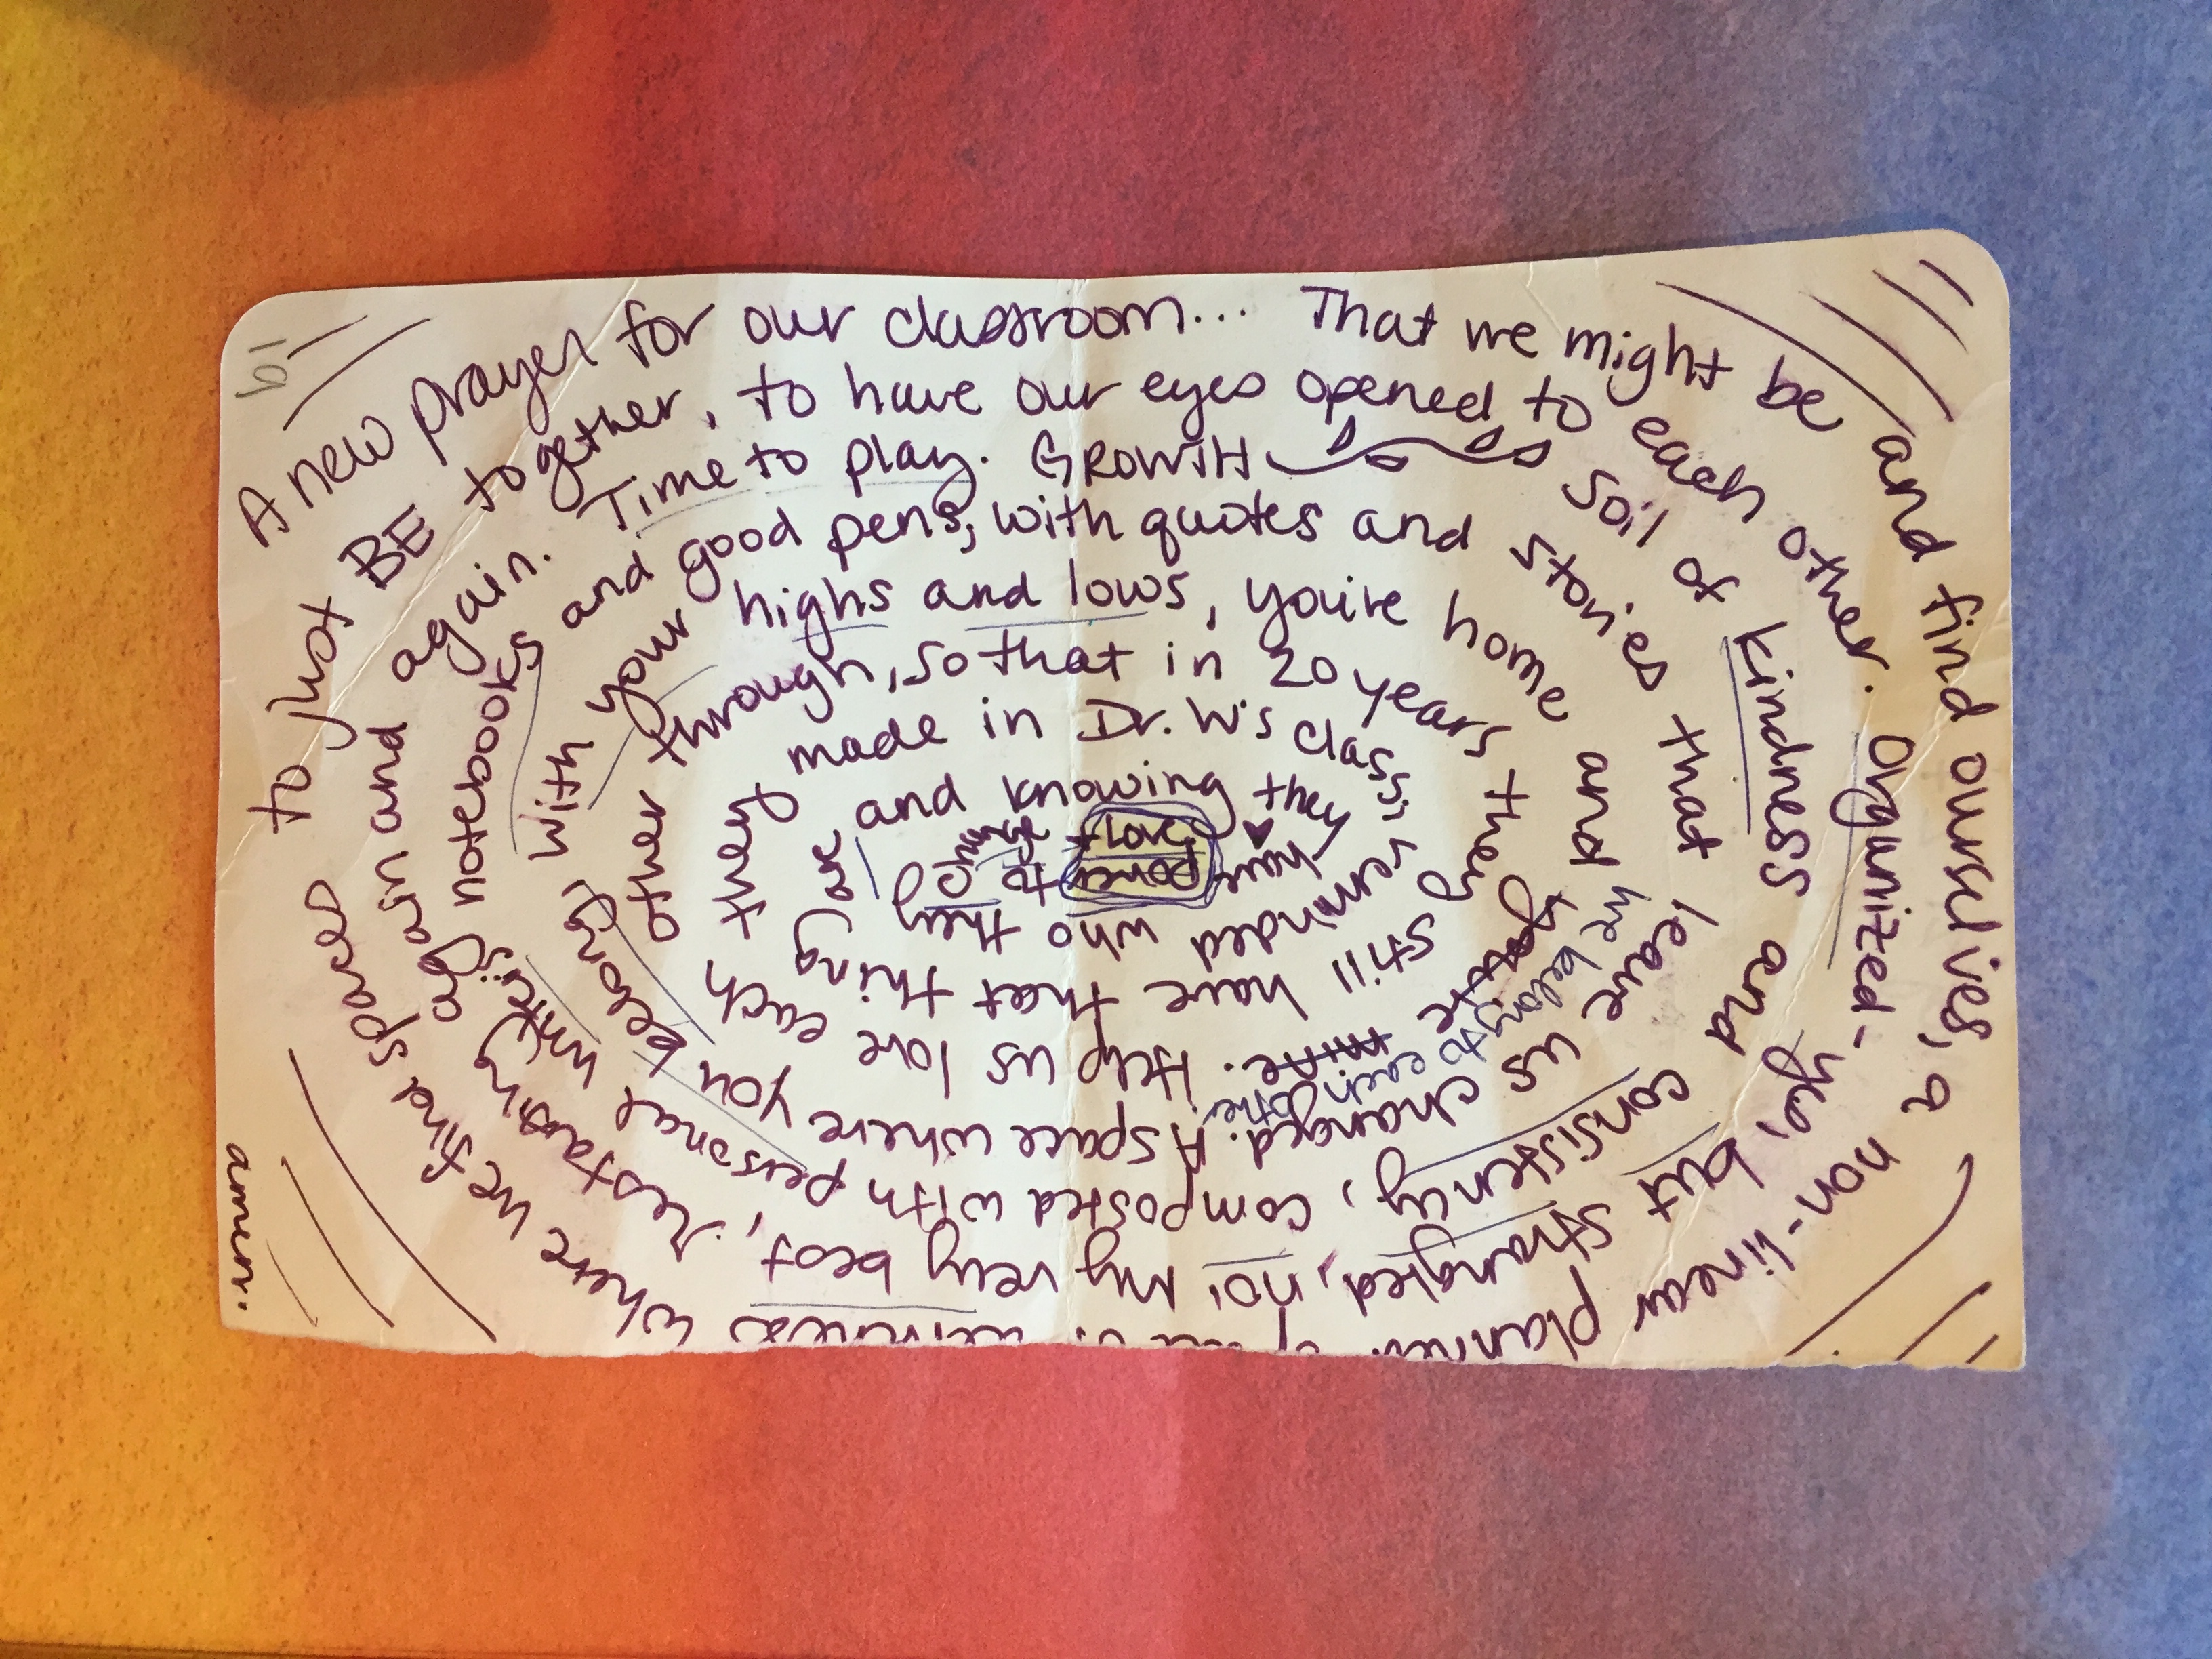 A new prayer for our classroom... That we might be and find ourselves, a non-linear planner of where we find spaces
to just BE together, to have our eyes opened to each other. Organized - yes, but strangled, no! My very best, restarting again and
again. Time to play. GROWTH soil of kindness and consistency, composted with personal
notebooks and good pens, with quotes and stories that leave us changed. A space where you belong,
with your highs and lows, you're home and we belong to each other. Help us love each
other through, so that in 20 years they still have that thing
they made in Dr. W's class, reminded who they
are and knowing they have power to change + love.
amen.